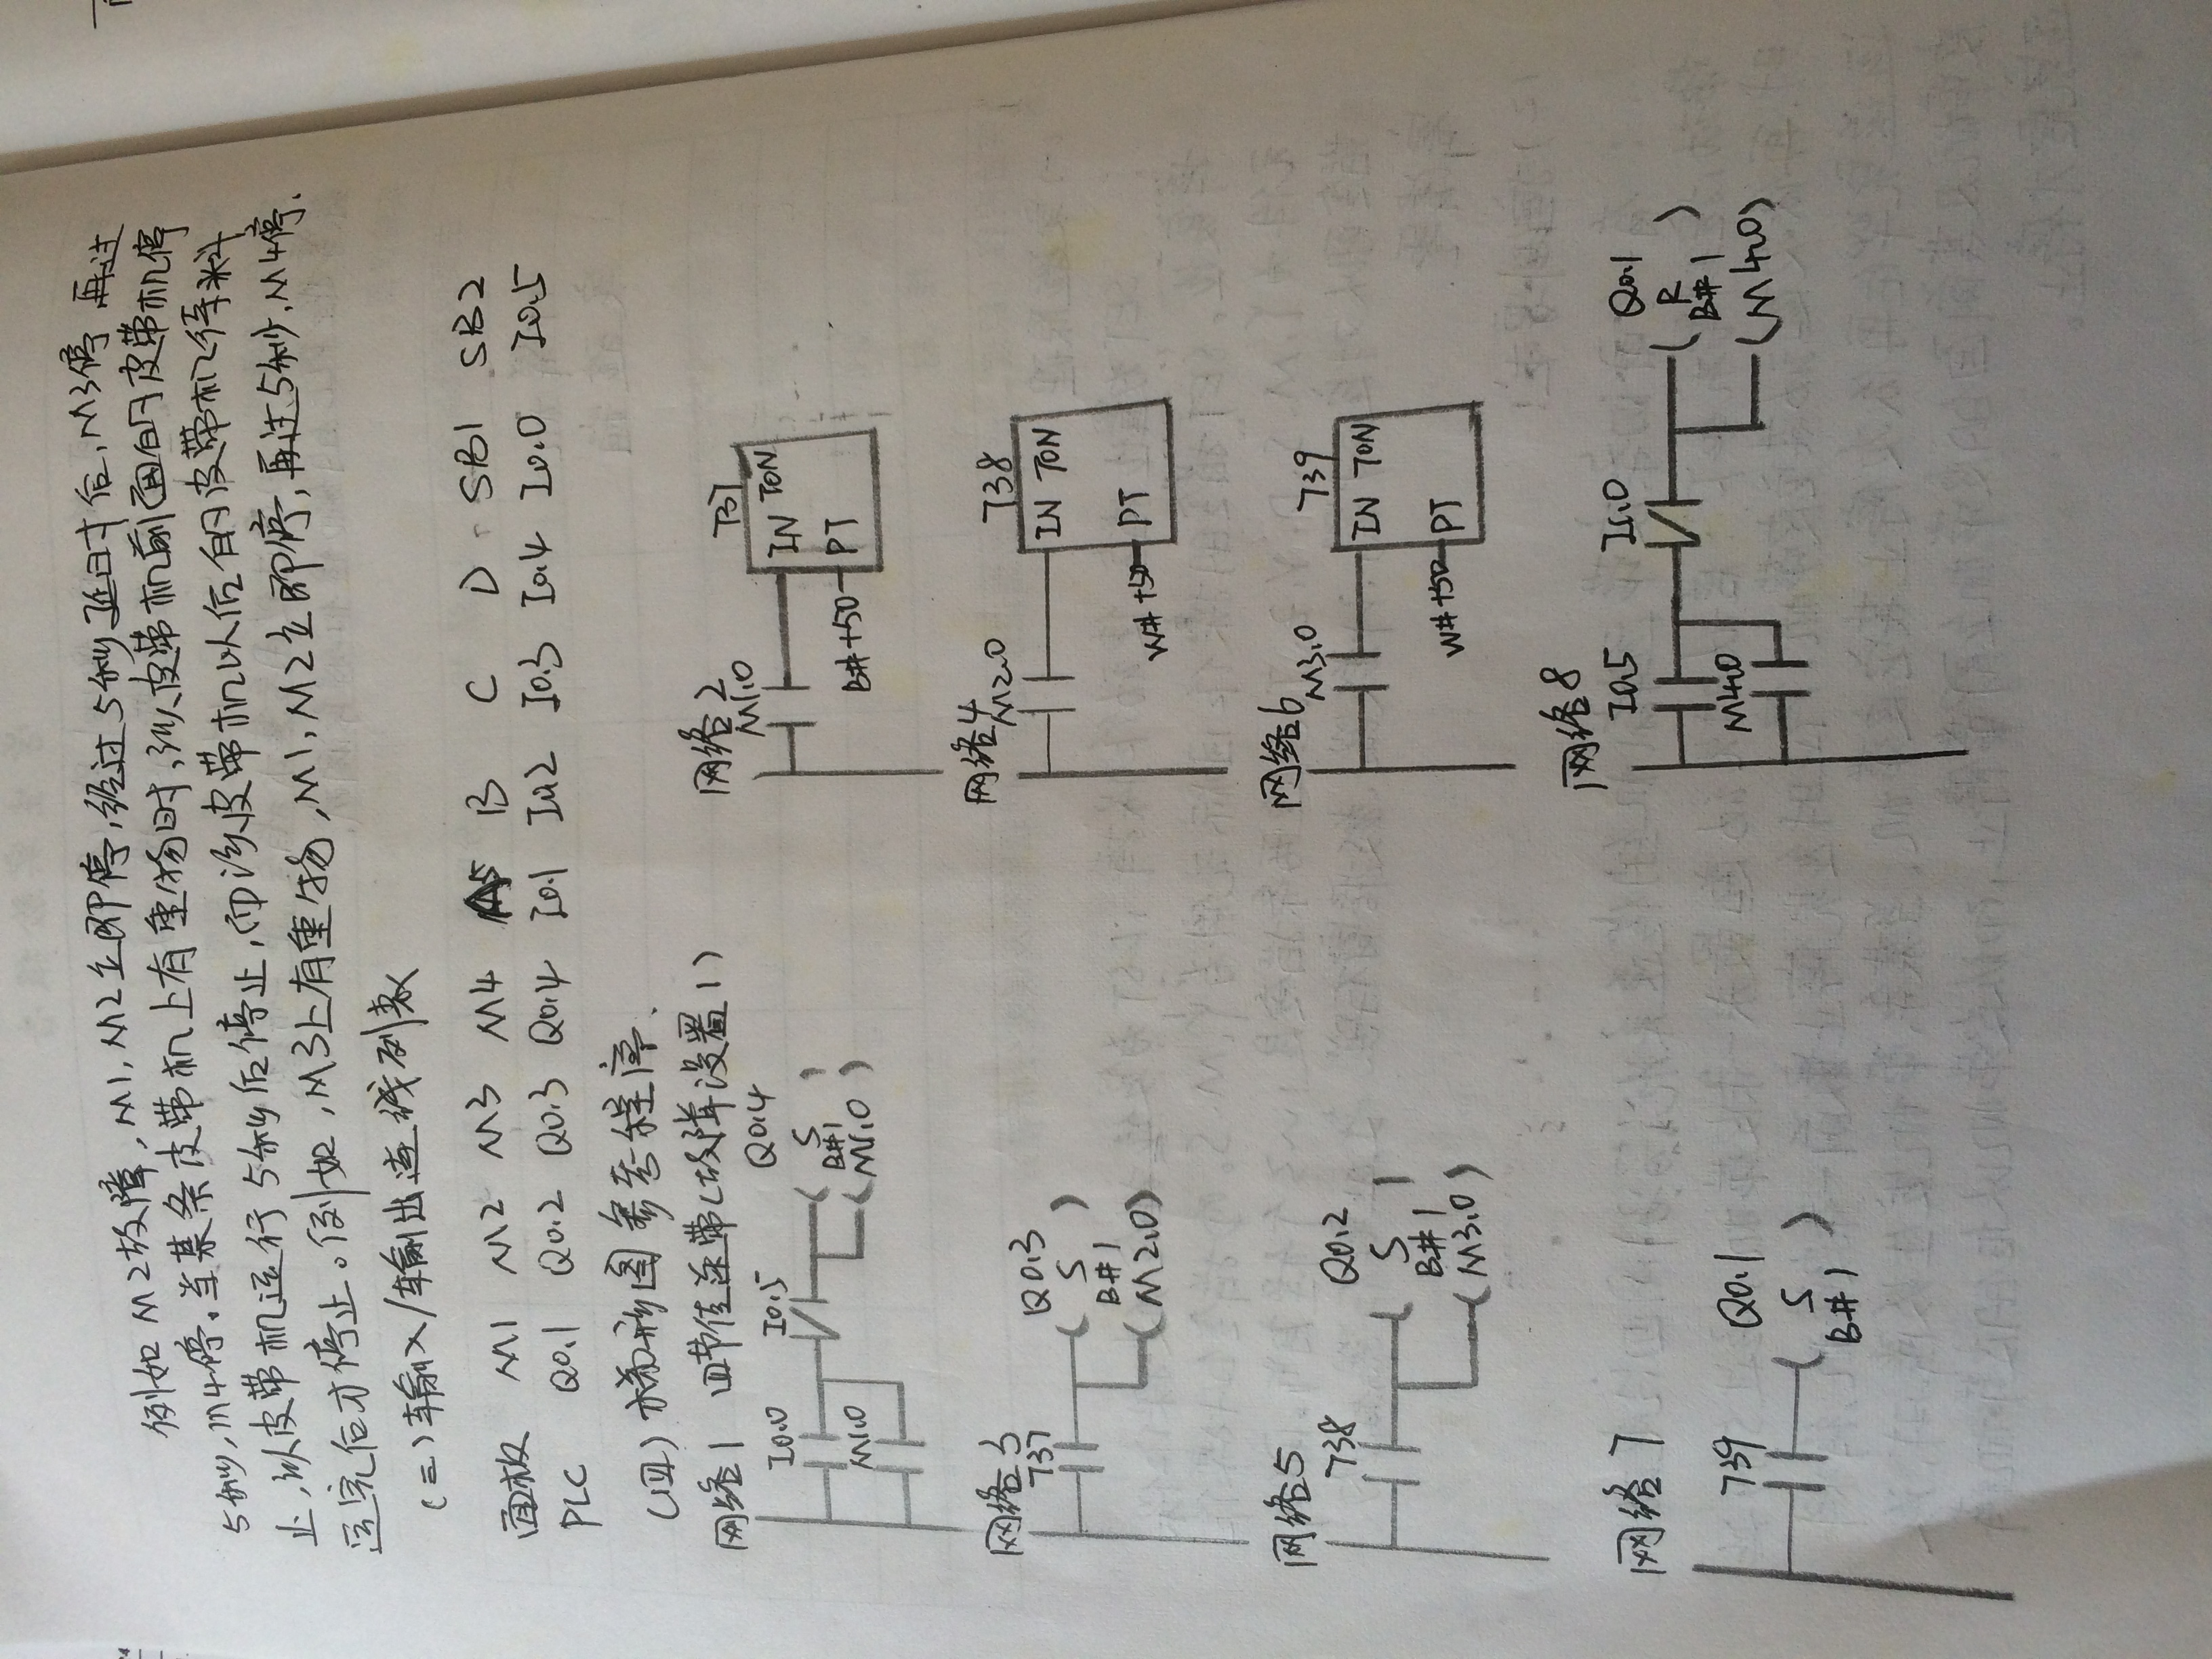 例如M2故障,M1,M2立即停,经过5秒延时后,M3停 再过
5秒,M4停。当某条皮带机上有重物时,该皮带机前面的皮带机停
止,该皮带机运行5秒后停止,而该皮带机以后的皮带机待料
运完后才停止。例如,M3上有重物,M1,M2立即停,再过5秒,M4停.
(三)输入/输出连线列表
面板 M1 M2 M3 M4 B C D SB1 SB2
PLC Q0.1 Q0.2 Q0.3 Q0.4 I0.1 I0.2 I0.3 I0.4 I0.0 I0.5
(四)梯形图参考程序.
网络1 四节传送带(故障设置1)
I0.0 I0.5 Q0.4
S
B#1
M1.0 (M1.0)
网络2
M1.0 T37
IN TON
B#+50 PT
网络3
T37 Q0.3
S
B#1
(M2.0)
网络4
M2.0 T38
IN TON
W#+50 PT
网络5
T38 Q0.2
S
B#1
(M3.0)
网络6
M3.0 T39
IN TON
W#+50 PT
网络7
T39 Q0.1
S
B#1
网络8
I0.5 I1.0 Q0.1
R
B#1
M4.0 (M4.0)